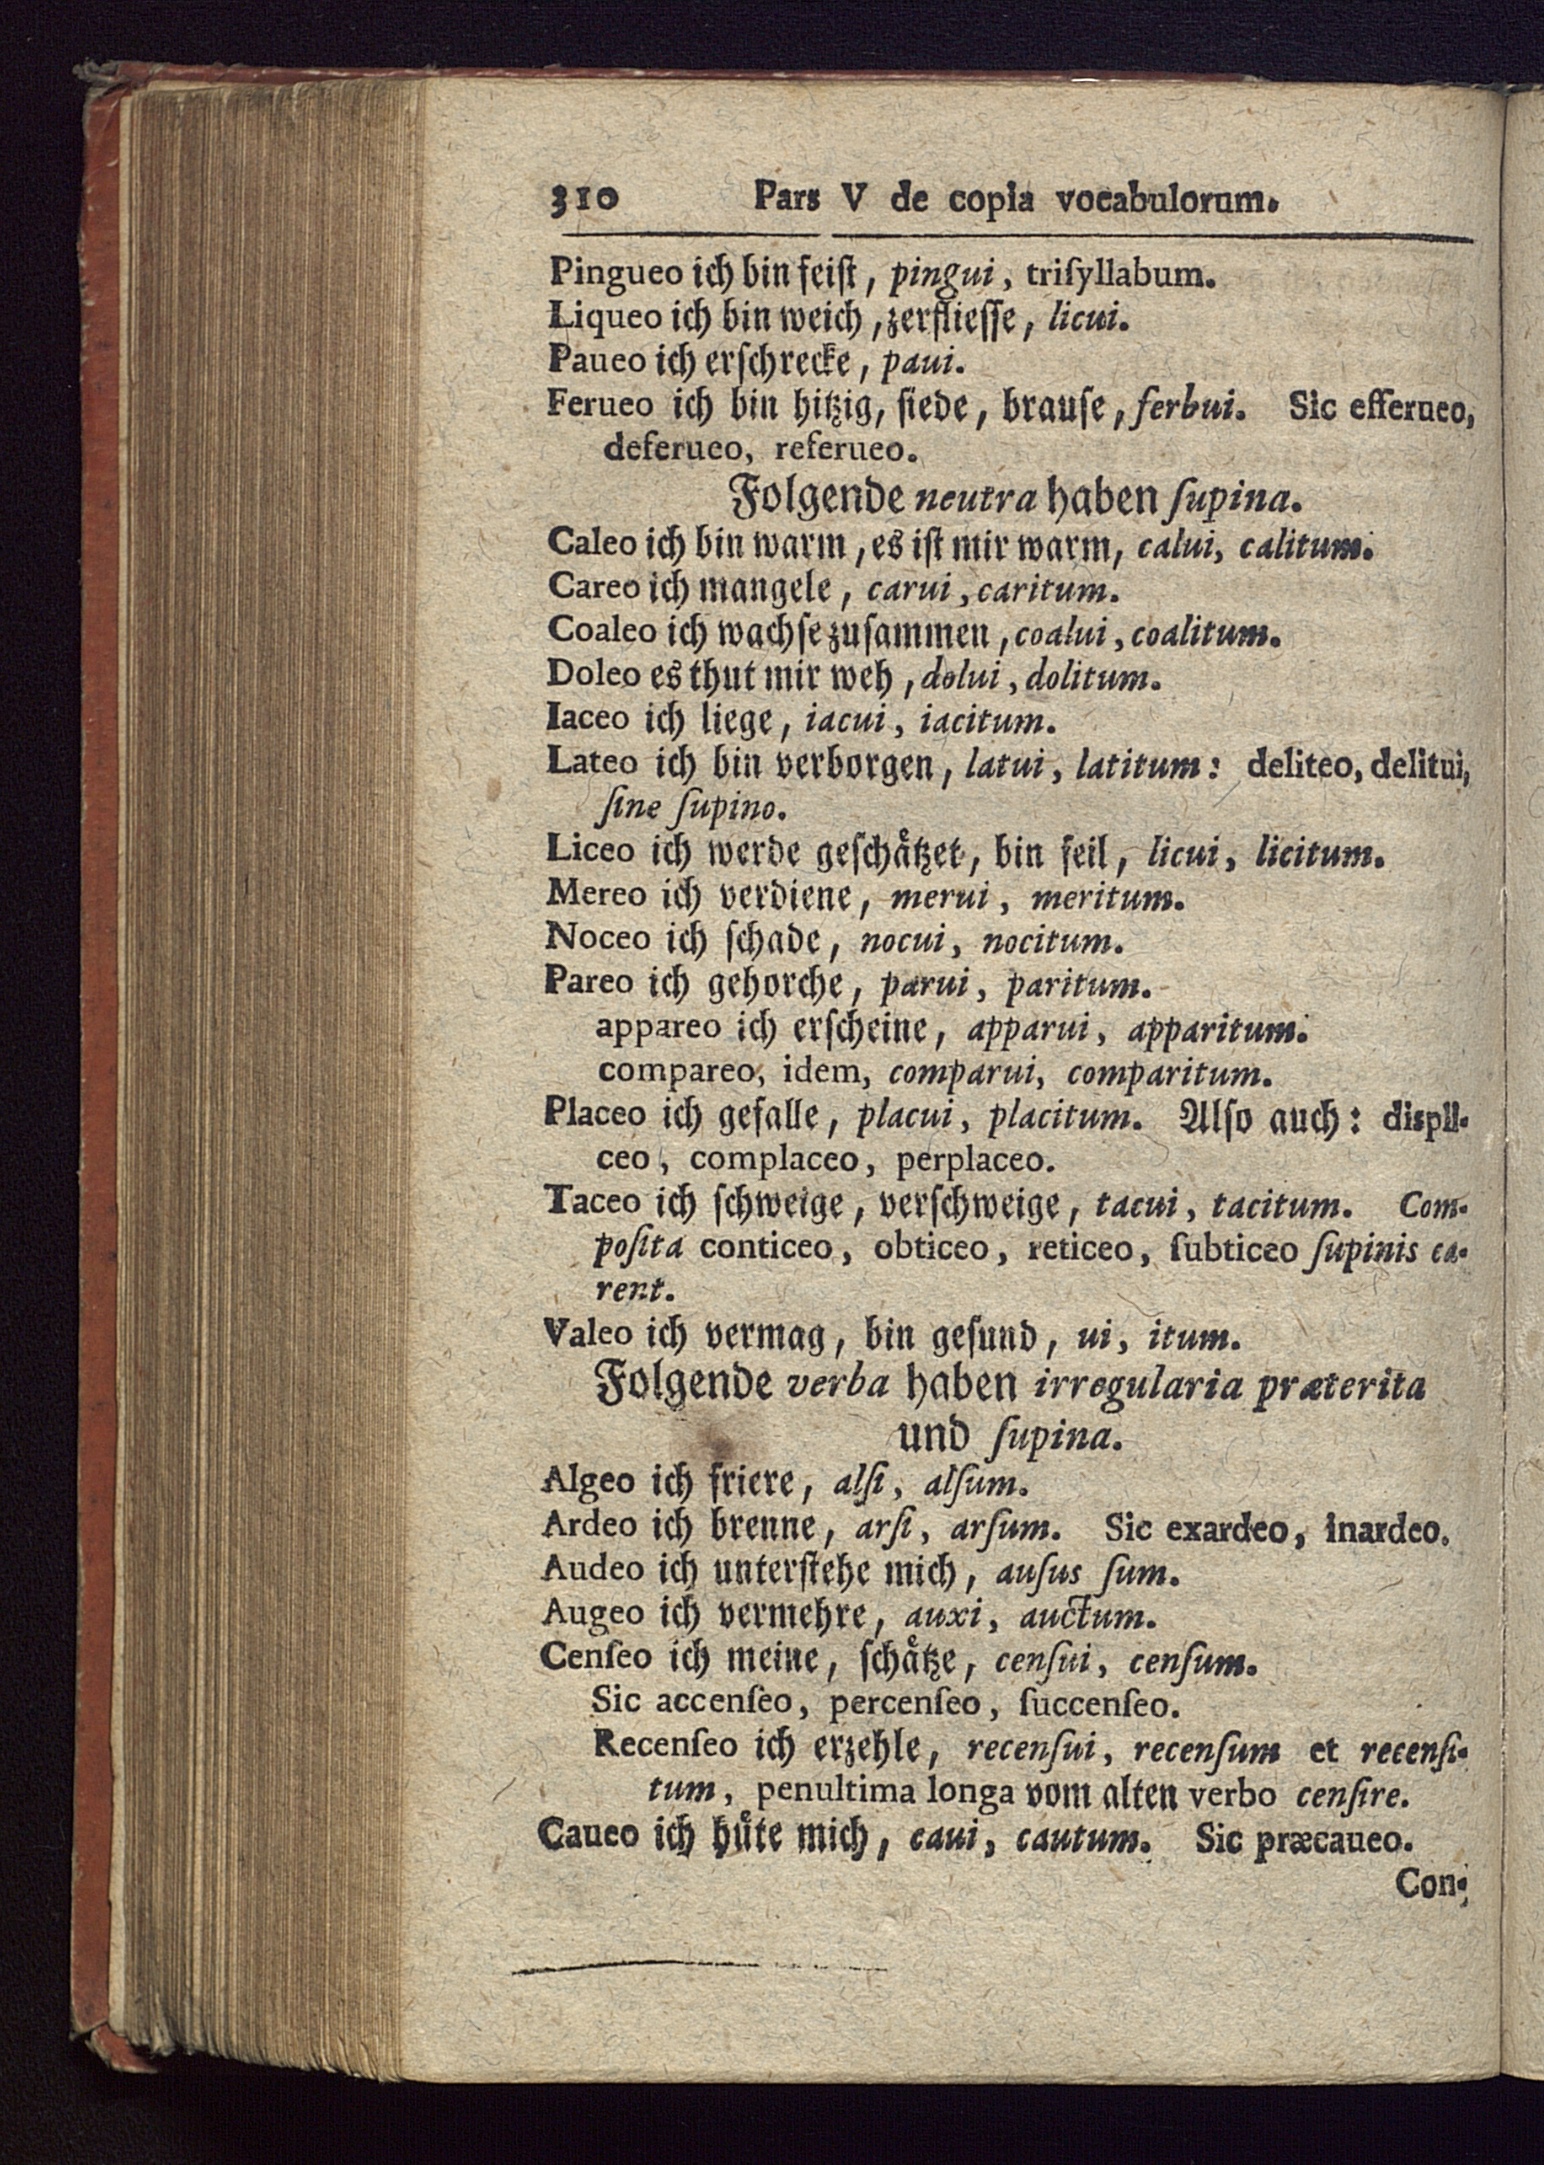 310 Pars V de copia vocabulorum.
Pingueo ich bin feiſt, pingui, triſyllabum.
Liqueo ich bin weich, zerflieſſe, licui.
Paueo ich erſchrecke, paui.
Ferueo ich bin hitzig, ſiede, brauſe, ferbui. Sic efferueo,
deferueo, referueo.
Folgende neutra haben ſupina.
Caleo ich bin warm, es iſt mir warm, calui, calitum.
Careo ich mangele, carui, caritum.
Coaleo ich wachſe zuſammen, coalui, coalitum.
Doleo es thut mir weh, dolui, dolitum.
Iaceo ich liege, iacui, iacitum.
Lateo ich bin verborgen, latui, latitum: deliteo, delitui,
ſine ſupino.
Liceo ich werde geſchaͤtzet, bin feil, licui, licitum.
Mereo ich verdiene, merui, meritum.
Noceo ich ſchade, nocui, nocitum.
Pareo ich gehorche, parui, paritum.
appareo ich erſcheine, apparui, apparitum.
compareo, idem, comparui, comparitum.
Placeo ich gefalle, placui, placitum. Alſo auch: displi-
ceo, complaceo, perplaceo.
Taceo ich ſchweige, verſchweige, tacui, tacitum. Com-
poſita conticeo, obticeo, reticeo, ſubticeo ſupinis ca-
rent.
Valeo ich vermag, bin geſund, ui, itum.
Folgende verba haben irregularia præterita
und ſupina.
Algeo ich friere, alſi, alſum.
Ardeo ich brenne, arſi, arſum. Sic exardeo, inardeo.
Audeo ich unterſtehe mich, auſus ſum.
Augeo ich vermehre, auxi, auctum.
Cenſeo ich meine, ſchaͤtze, cenſui, cenſum.
Sic accenſeo, percenſeo, ſuccenſeo.
Recenſeo ich erzehle, recenſui, recenſum et recenſi-
tum, penultima longa vom alten verbo cenſire.
Caueo ich huͤte mich, caui, cautum. Sic præcaueo.
Con-